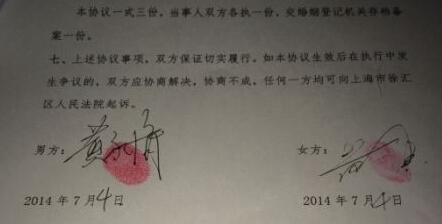 本协议一式三份，当事人双方各执一份，交婚姻登记机关存档备
案一份。
七、上述协议事项，双方保证切实履行。如本协议生效后在执行中发
生争议的，双方应协商解决，协商不成，任何一方均可向上海市徐汇
区人民法院起诉。
男方：黄 女方：
2014 年 7 月 4 日 2014 年 7 月 4 日